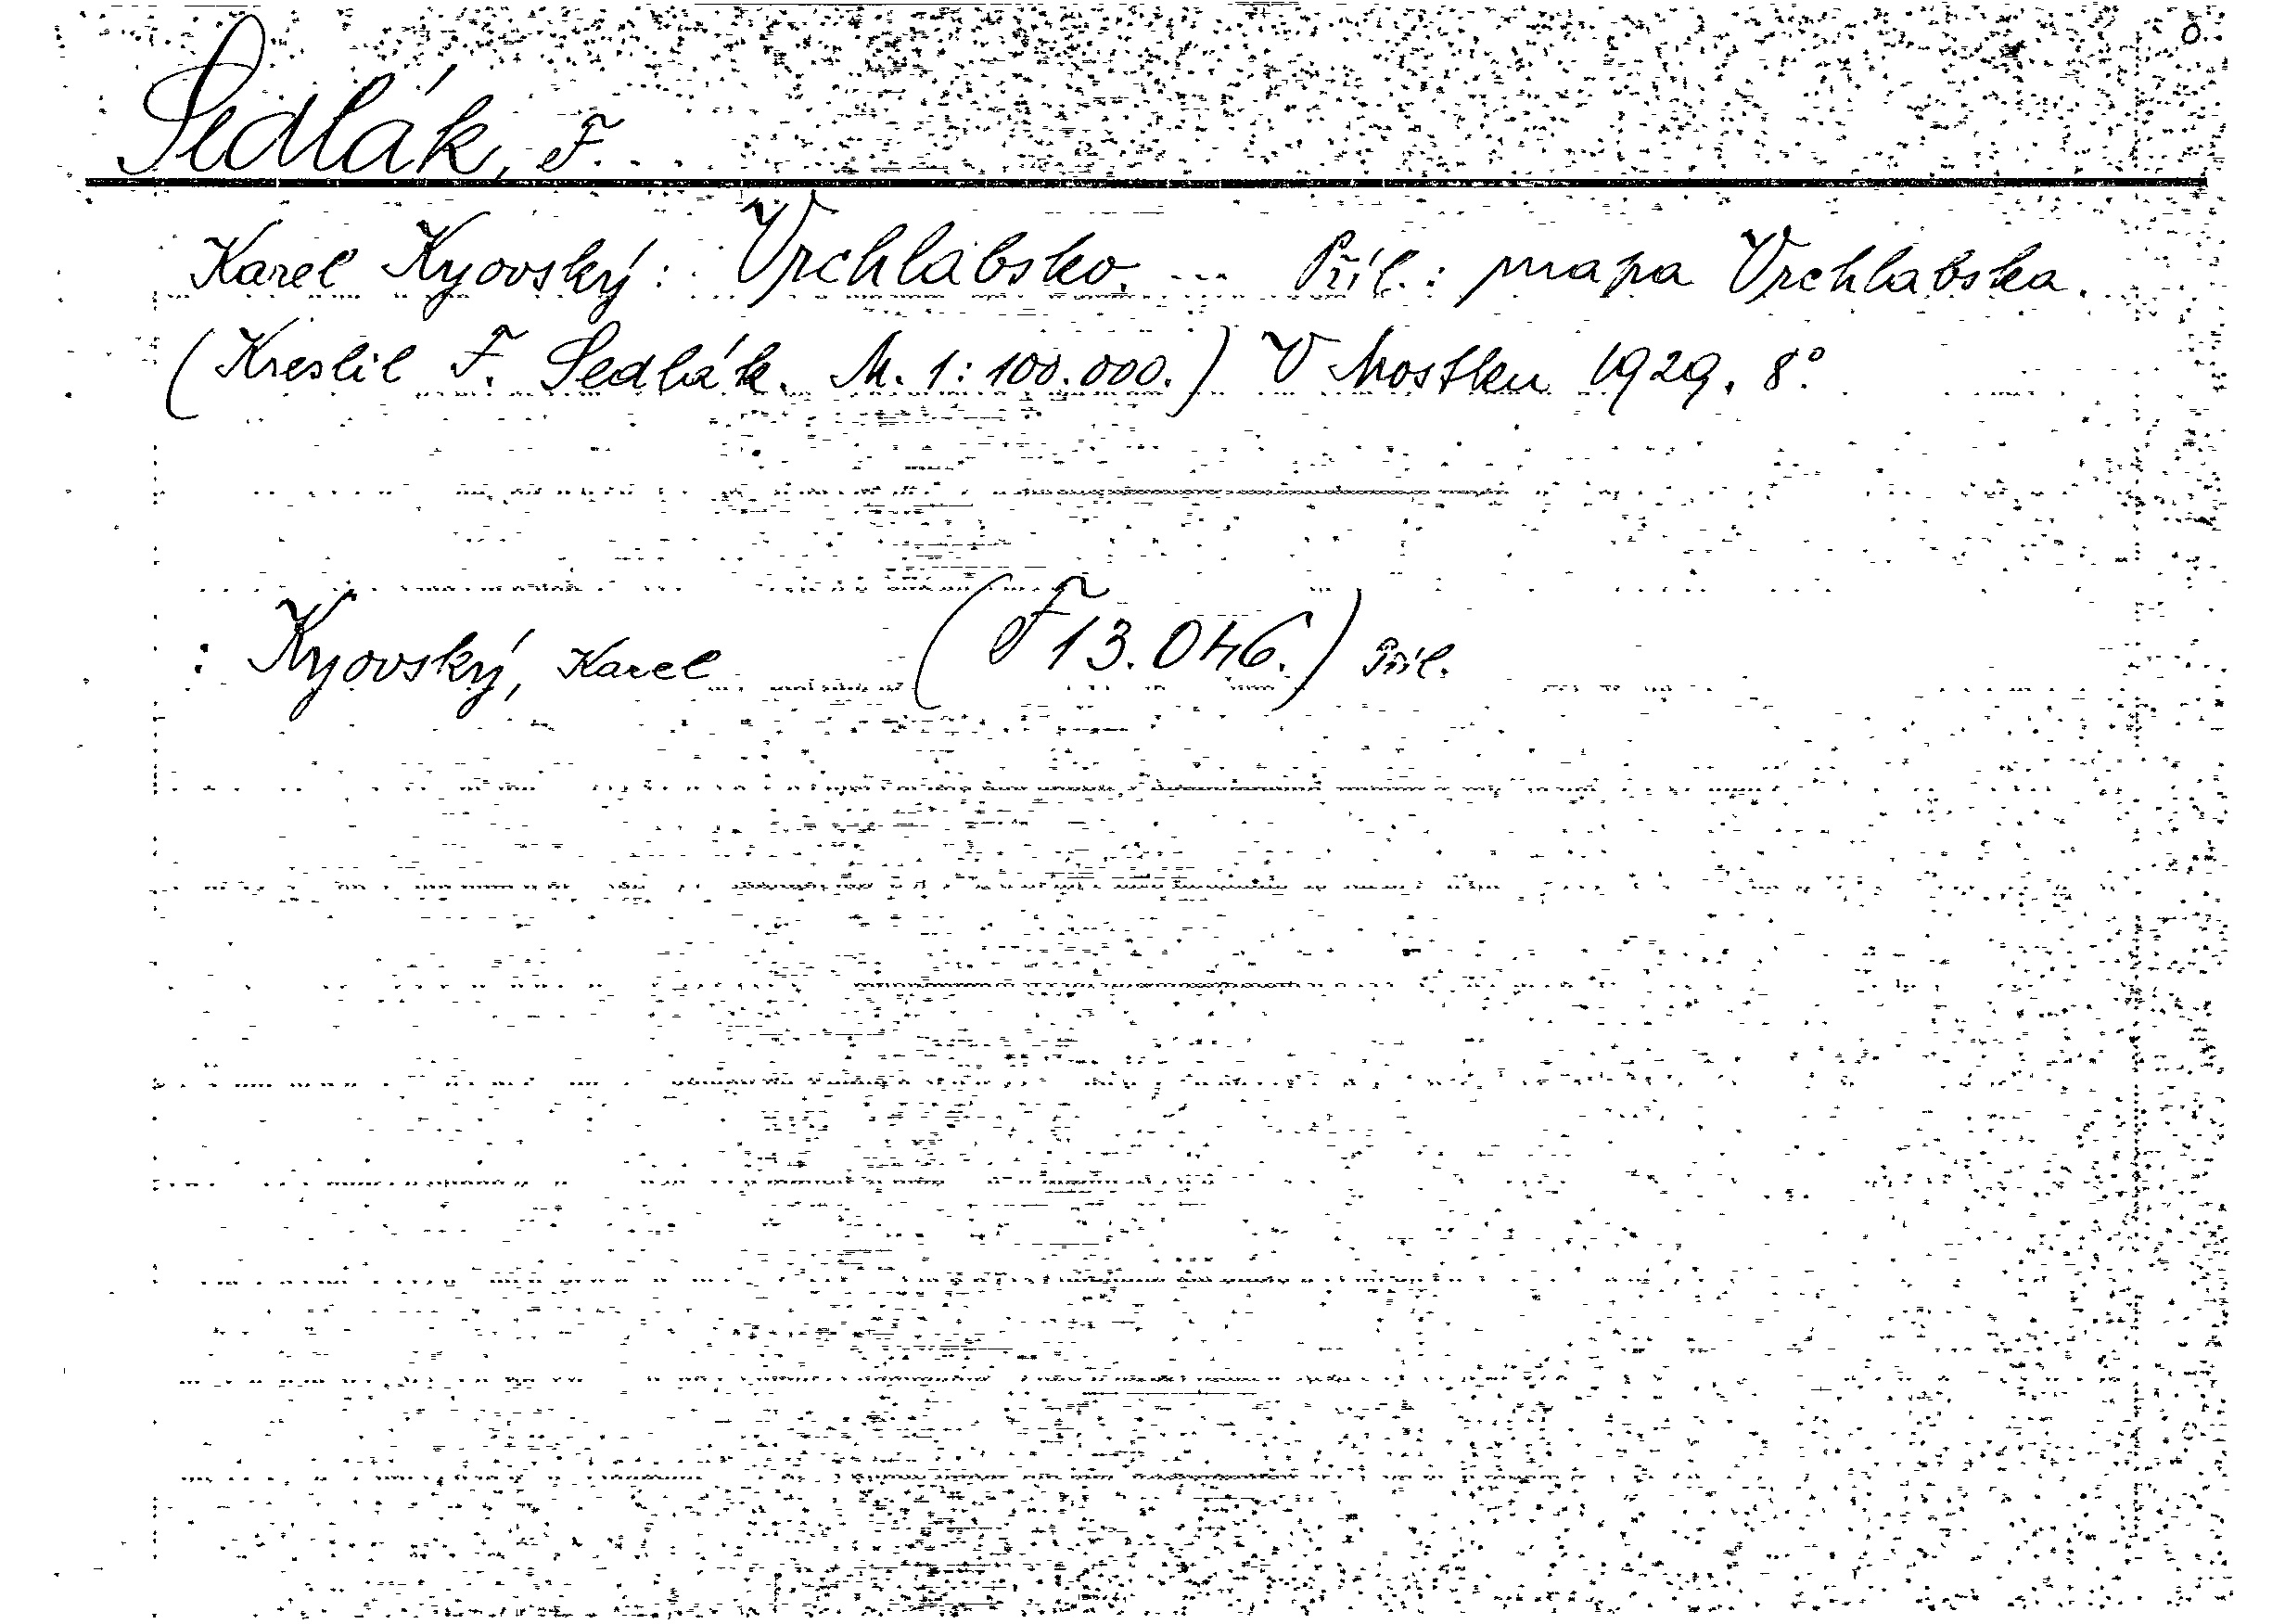 Sedlák, F.
Karel Kyovský: Vrchlabsko. -- Příl.: mapa Vrchlabska.
(Kreslil F. Sedlák. M. 1:100.000.) V Mostku 1929. 8°.
: Kyovský, Karel (F 13.046.) Příl.